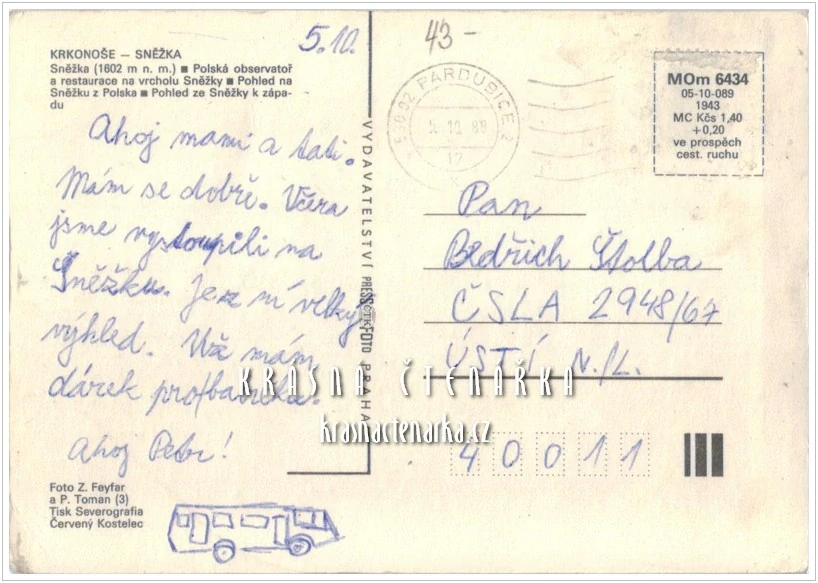 5.10.
43-
KRKONOŠE – SNĚŽKA
Sněžka (1602 m n. m.) ■ Polská observatoř
a restaurace na vrcholu Sněžky ■ Pohled na
Sněžku z Polska ■ Pohled ze Sněžky k zápa-
du
Ahoj mami a tati.
Mám se dobře. Včera
jsme vystoupili na
Sněžku. Je z ní velký
výhled. Už mám
dárek pro
Ahoj Petr!
Foto Z. Feyfar
a P. Toman (3)
Tisk Severografia
Červený Kostelec
VYDAVATELSTVÍ PRESSFOTO PRAHA
PARDUBICE 2
5.10.88
12
MOm 6434
05-10-089
1943
MC Kčs 1,40
+0,20
ve prospěch
cest. ruchu
Pan
Bedřich Štolba
ČSLA 2948/67
ÚSTÍ N./L.
40011
KRASNA ČTENÁŘKA
krasnactenarka.cz